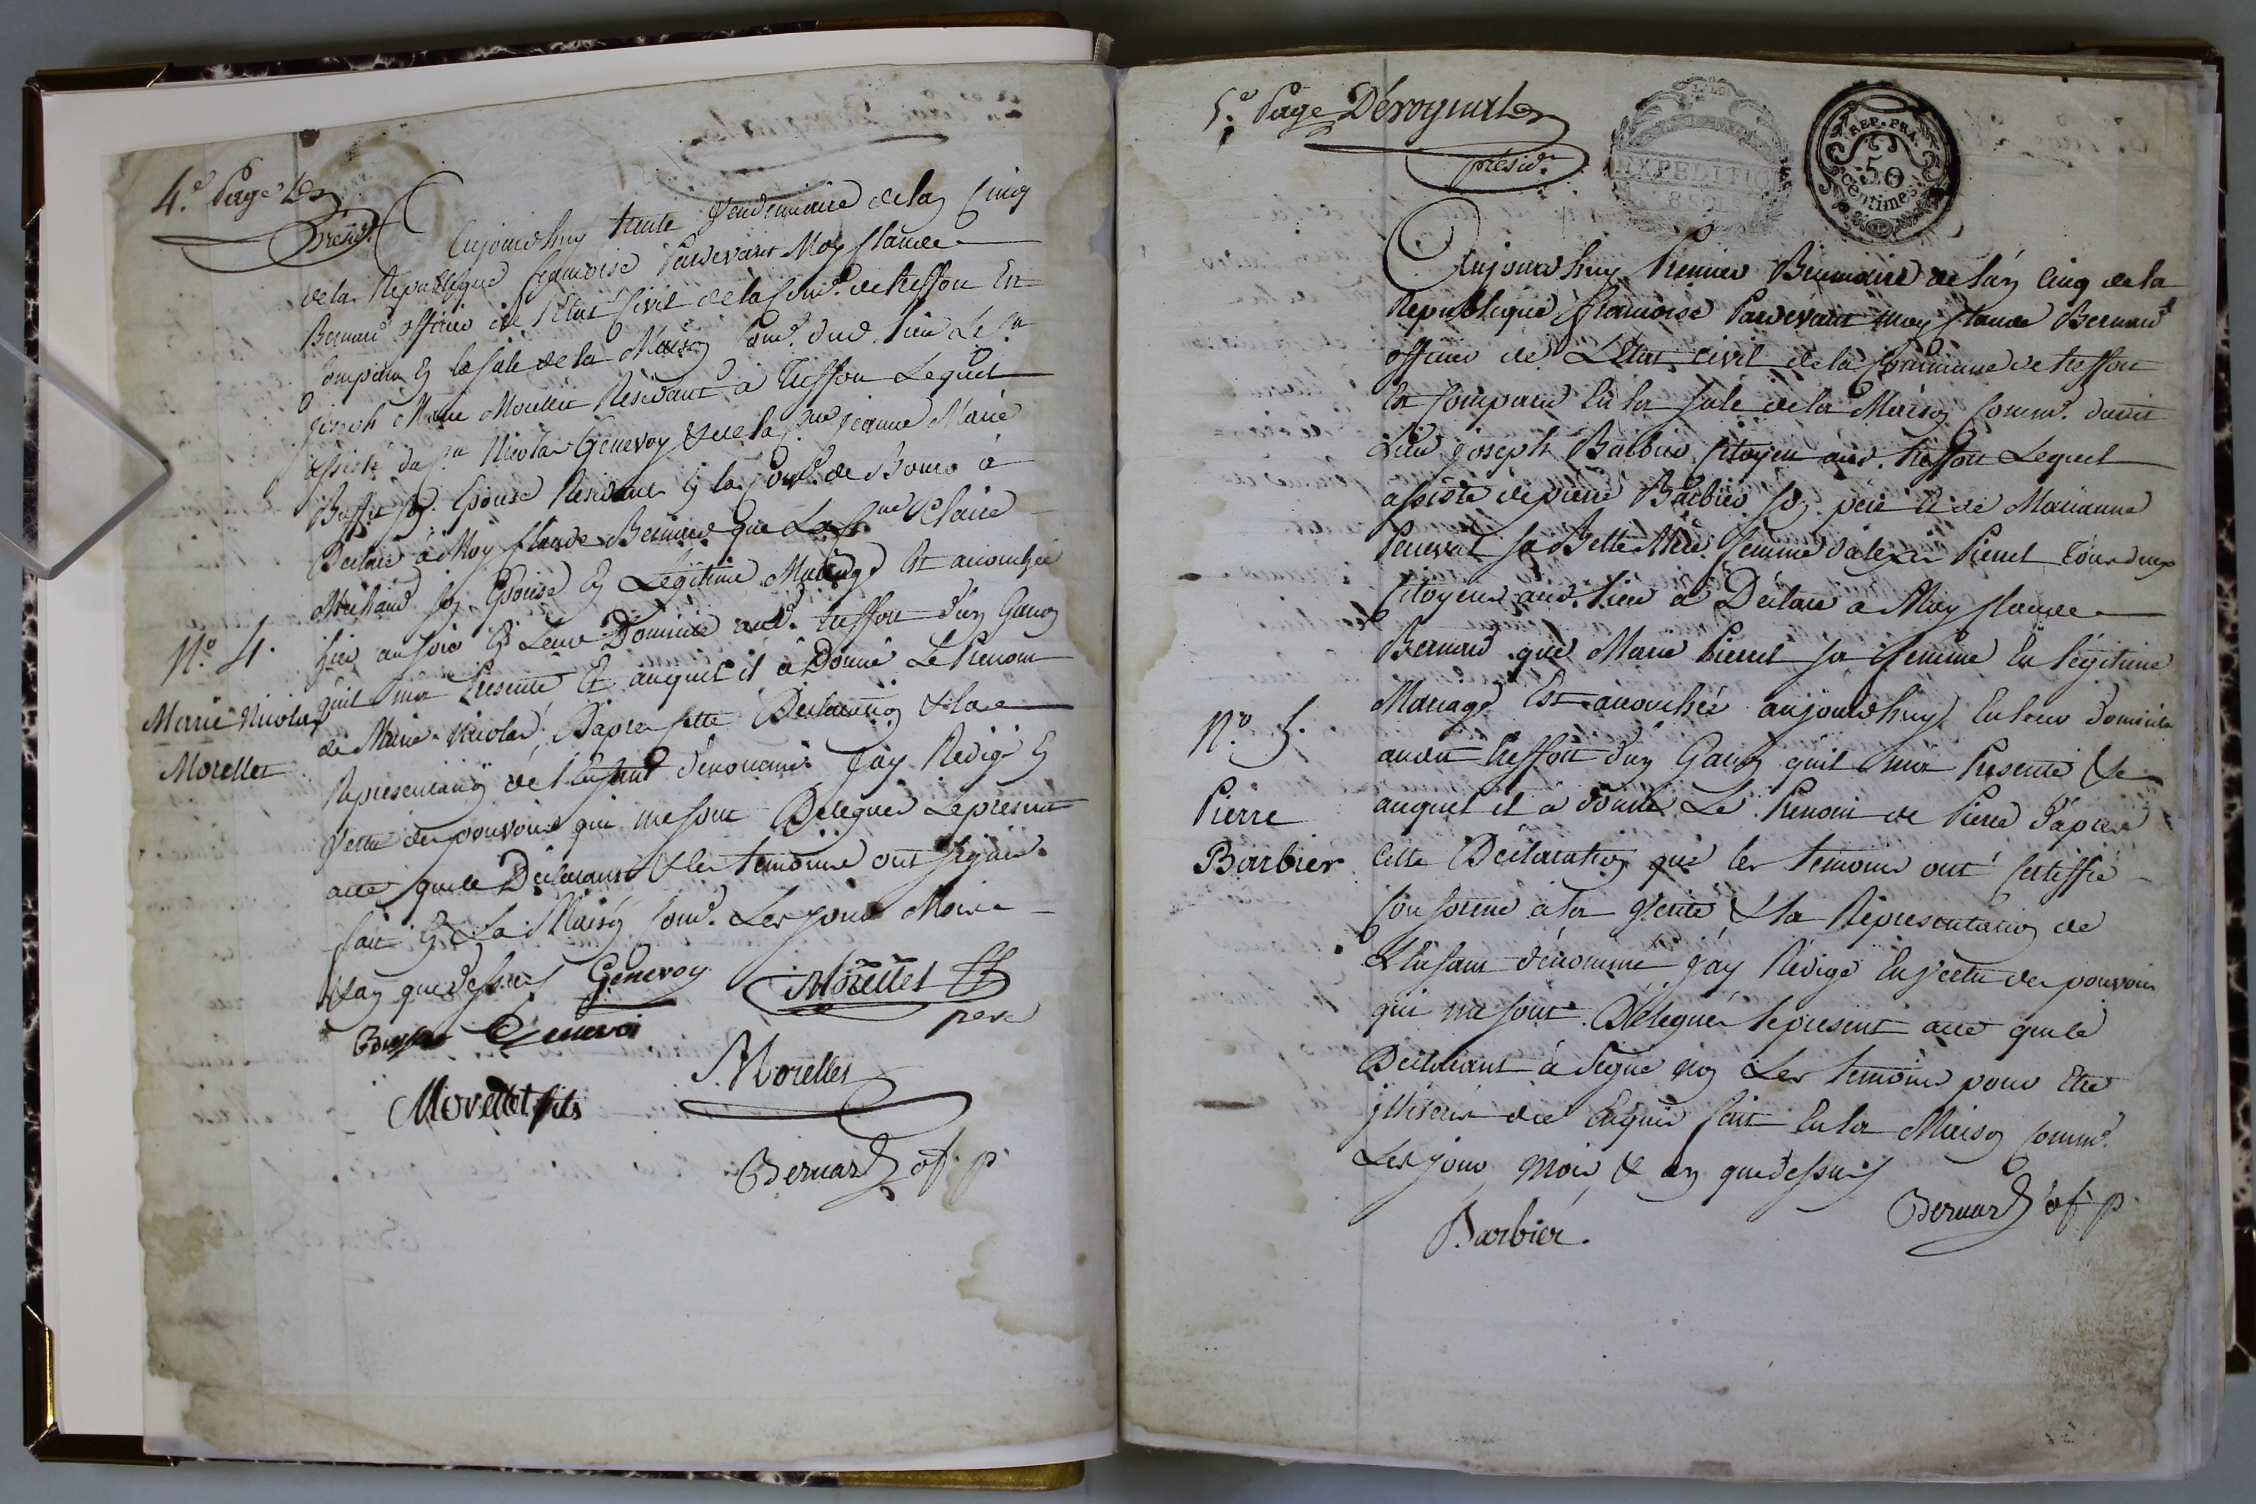 4.e Page
présidt
Aujourdhuy trente Vendemiaire de lan Cinq
de la Republique francoise Pardevant Moy Claude
Bernard officier de l'Etat Civil de la Com.e de treffort Est
Comparu En la sale de la Maison Com.e dud. lieu Le Cn
Joseph Marie Morellet Résidant à Treffort Lequel
assisté du Cn Nicolas Genevoy & de la Cne Jeanne Marie
Buffet son Epouse Residants En la Com.e de Bourg à
Declaré à Moy Claude Bernard Que La Cne Claire
Michaud son Epouse En Légitime Mariage Est accouchée
hier au soir En Leur Domicile aud. treffort d'un Garçon
quil ma Presenté Et auquel il à Donné Le Prenom
de Marie Nicolas, D'apres cette Declaration & la
Representation de l'Enfant dénommé Jay Redigé En
Vertu des pouvoirs qui me sont Delegués Lepresent
acte que le Déclarant & les temoins ont signés.
fait En La Maison Com.e Les jour Mois
& an que dessus
N.o 4.
Marie Nicolas
Morellet
Genevoy
Morellet
pere
Genevoi
Morellet fils
Morellet
Bernard of. p.
5.e Page Dérognat
présidt
EXPEDITION
REP. FRA.
50
Centimes
Aujourdhuy Premier Brumaire de lán Cinq de la
Republique francoise Pardevant moy Claude Bernard
officier de L'Etat civil de la Commune de treffort
Est Comparu En la Sale de la Maison Comm.e dudit
Lieu joseph Barbier Citoyen aud. treffort Lequel
assisté de pierre Barbier son pere Et de Marianne
sa Belle Mere femme d'alexis Pierret tous deux
Citoyens aud. lieu a Déclaré a Moy Claude
Bernard que Marie Pierret sa femme En légitime
Mariage Est accouchée aujourdhuy En leur domicile
audit treffort d'un Garçon quil ma Presenté &
auquel il à donné Le Prenom de Pierre D'apres
Cette Déclaration que les temoins ont Certiffié
Conforme à la Verité & la Representation de
L'Enfant dénommé jáy Rédigé En Vertu des pouvoirs
qui me sont Délégués le present acte que le
Déclarant à Signé non Les temoins pour Etre
illiterés de ce Enquis fait En la Maison Comm.e
Les jour, mois, & an que dessus
N.o 5.
Pierre
Barbier
Barbier.
Bernard of. p.